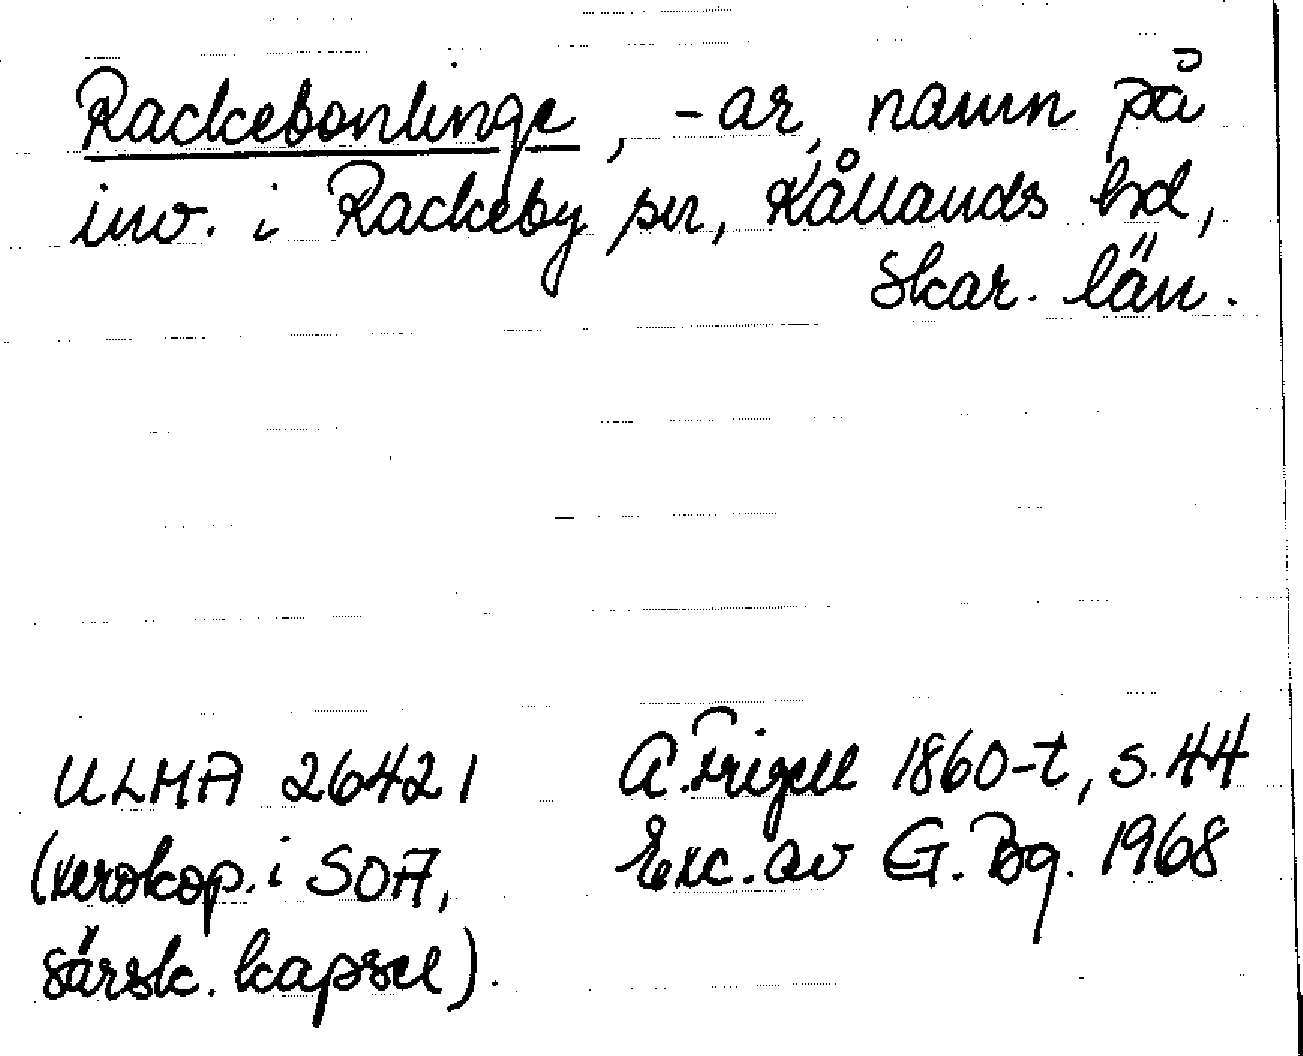 Rackebonlinge, -ar, namn på
inv. i Rackeby sn, Kållands hd,
Skar. län.
ULMA 26421
(xerokop. i SOA,
särsk. kapsel).
A. Frigell 1860-t, s. 44
Exc. av G. Bg. 1968